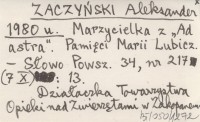 ZACZYŃSKI Aleksander
1980 u. Marzycielka z „Ad
astra". Pamięci Marii Lubicz.
– Słowo Powsz. 34, nr 217
(7 X): 13.
Działaczka Towarzystwa
Opieki nad Zwierzętami w Zakopanem